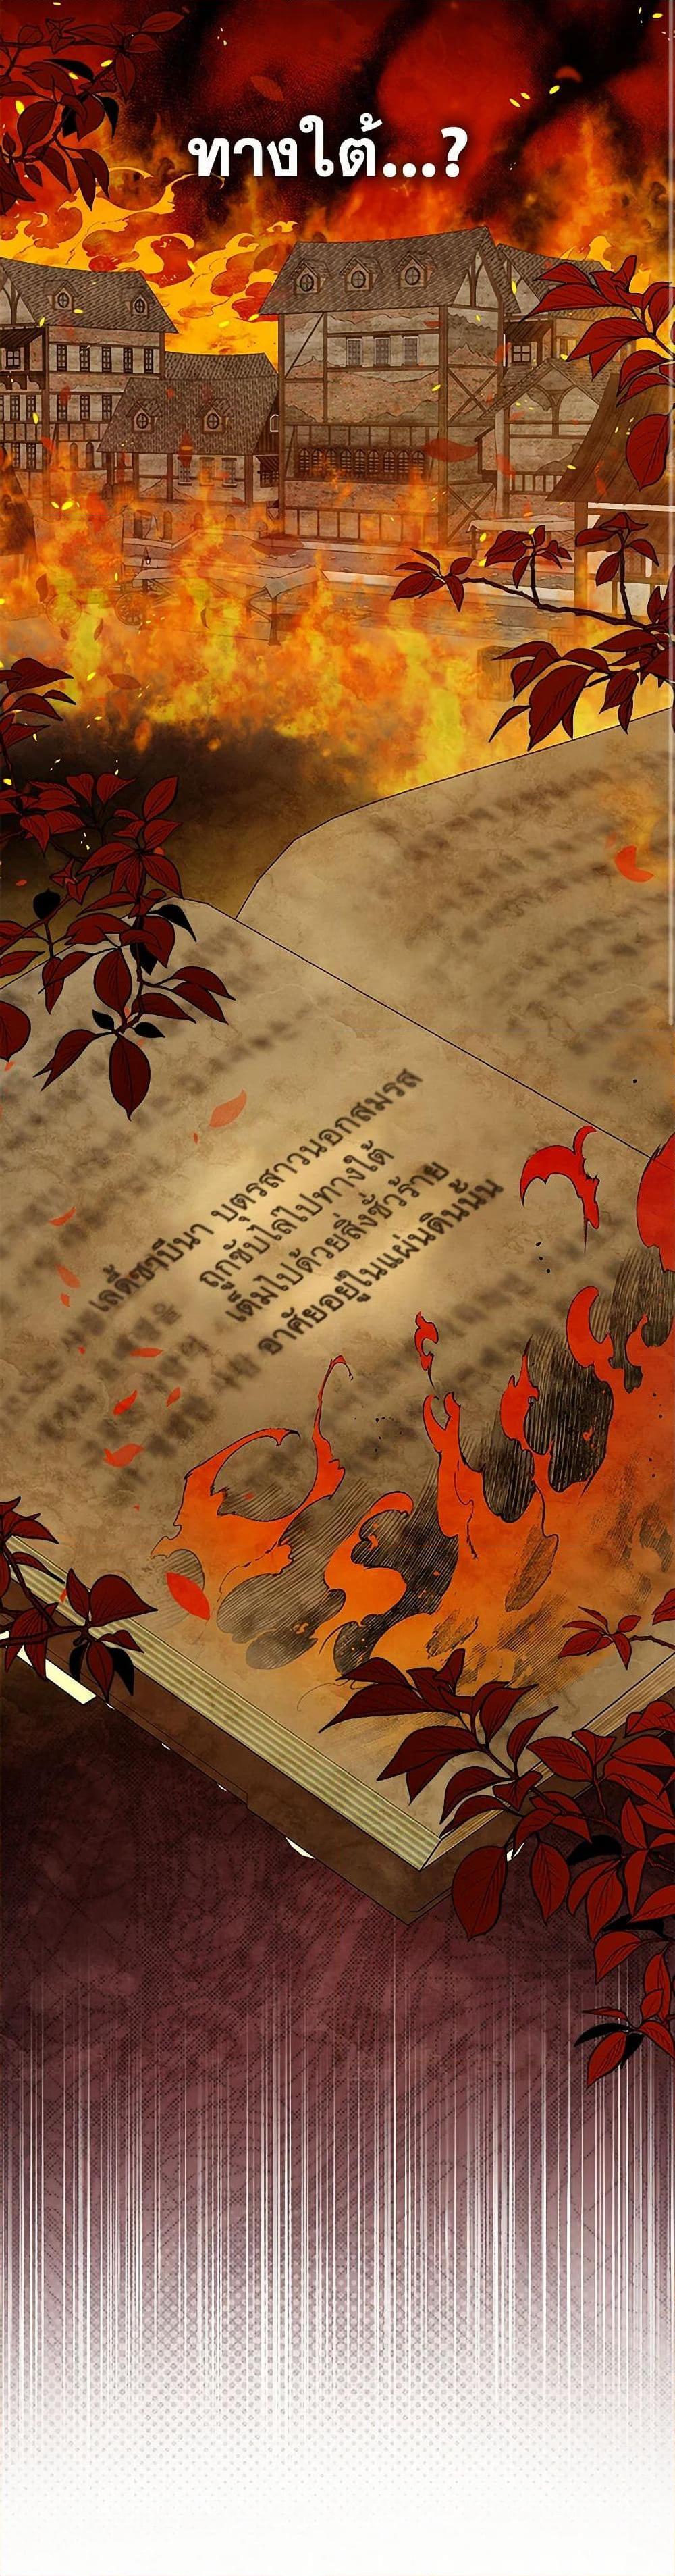 ทางใต้...?
เลดี้ซาบีนา บุตรสาวนอกสมรส
ถูกขับไล่ไปทางใต้
เต็มไปด้วยสิ่งชั่วร้าย
อาศัยอยู่ในแผ่นดินนั้น